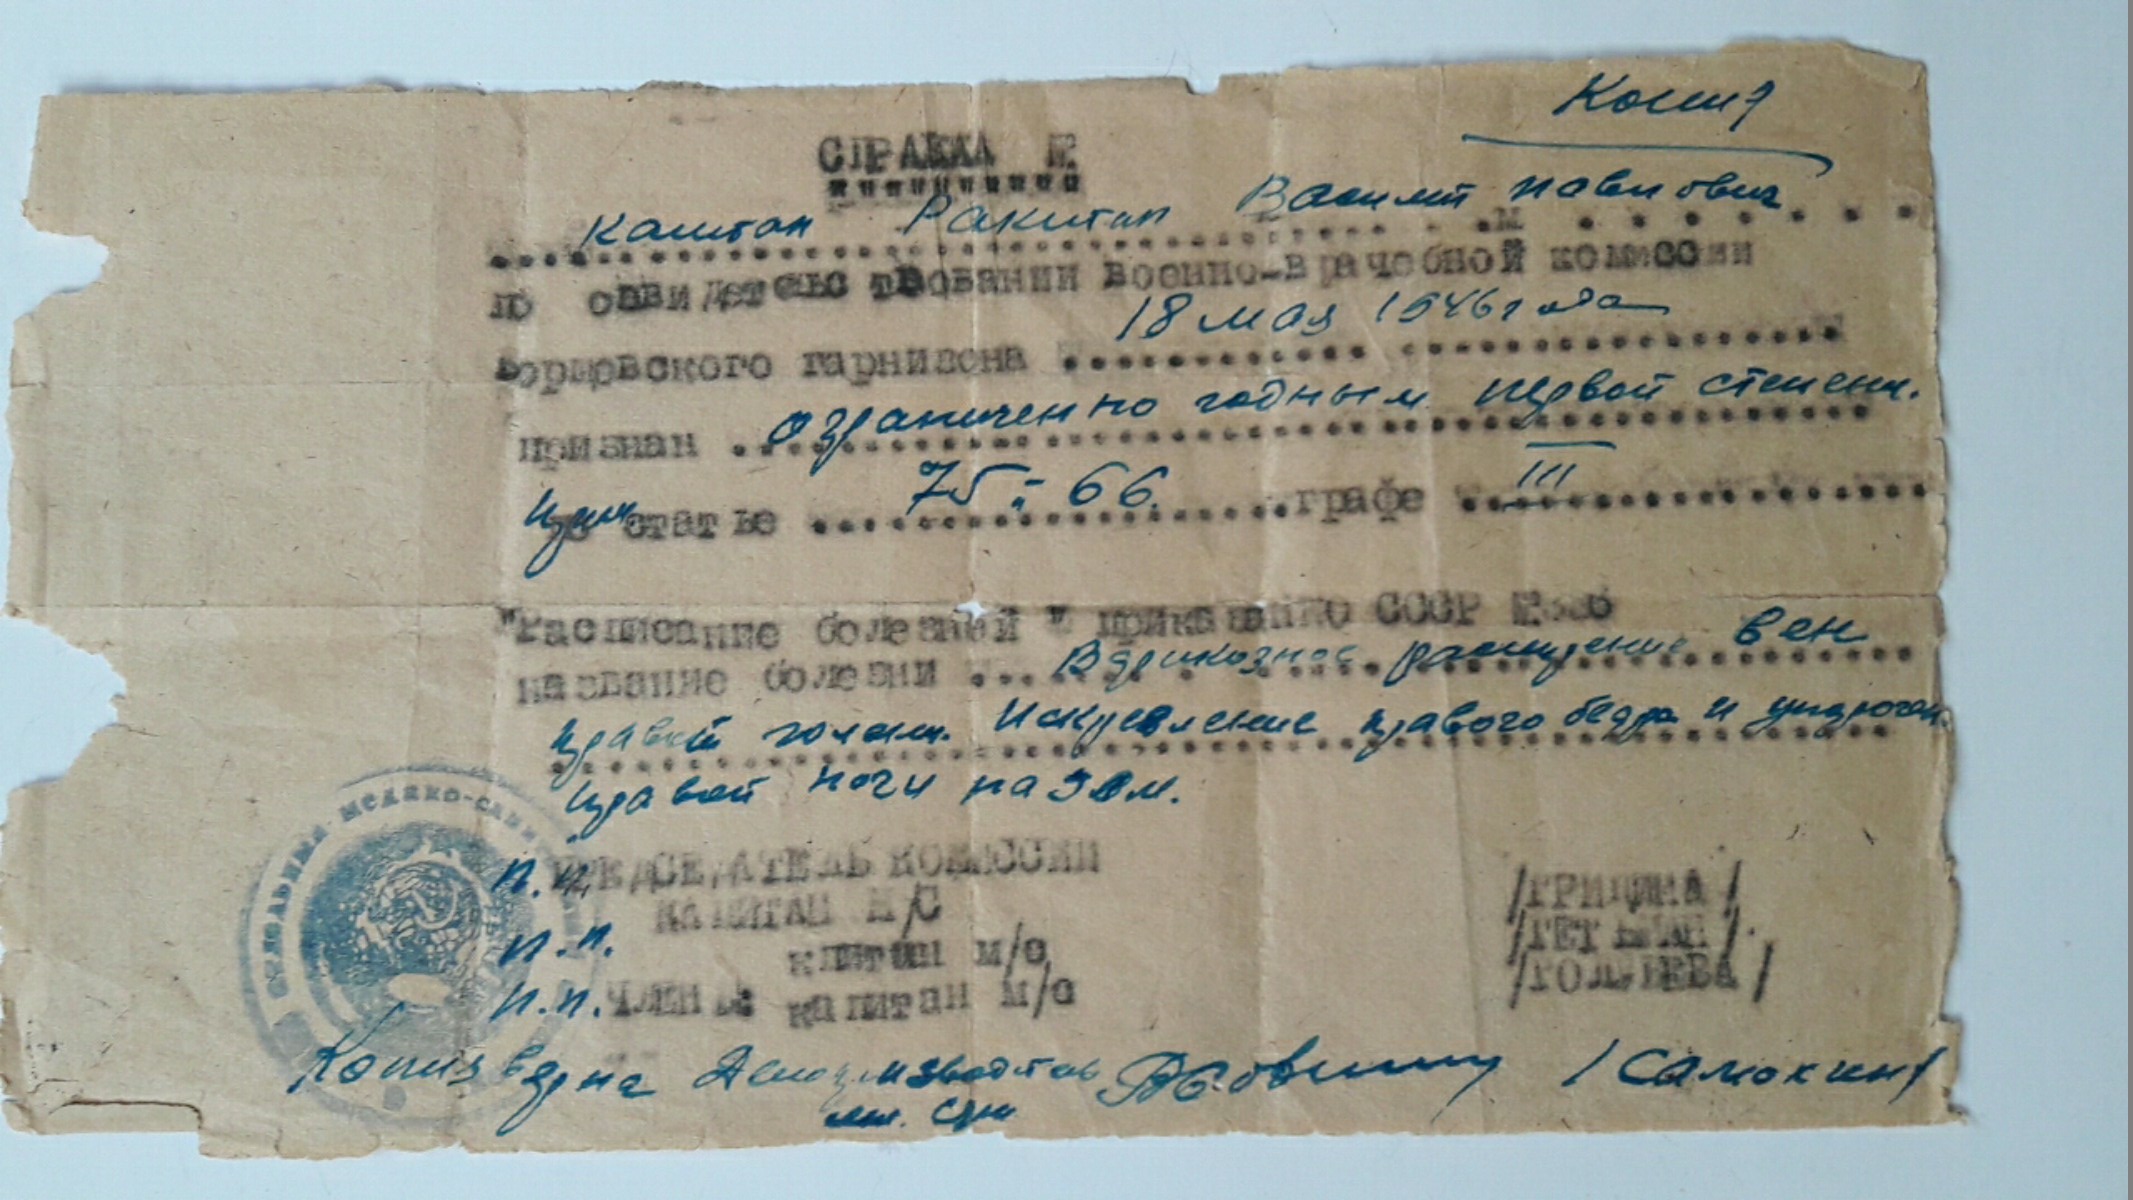 Копия
СПРАВКА №
Капитан Ракитин Василий Павлович
по освидетельствовании военно-врачебной комиссии
18 мая 1946 года
гарнизона
признан ограниченно годным первой степени.
по статье 75 - 66. графе III
"Расписание болезней" СССР №
название болезни Варикозное расширение вен
правой голени. Искривление правого бедра и
правой ноги на 3 см.
п.п. ПРЕДСЕДАТЕЛЬ КОМИССИИ
КАПИТАН М/С /ГРИЦИНА/
п.п. капитан м/с /ГЕТЬМАН/.
п.п. ЧЛЕНЫ: капитан м/с
МЕДИКО-САНИ
Копия верна Делопроизводитель /Самохин/
мл. с-нт